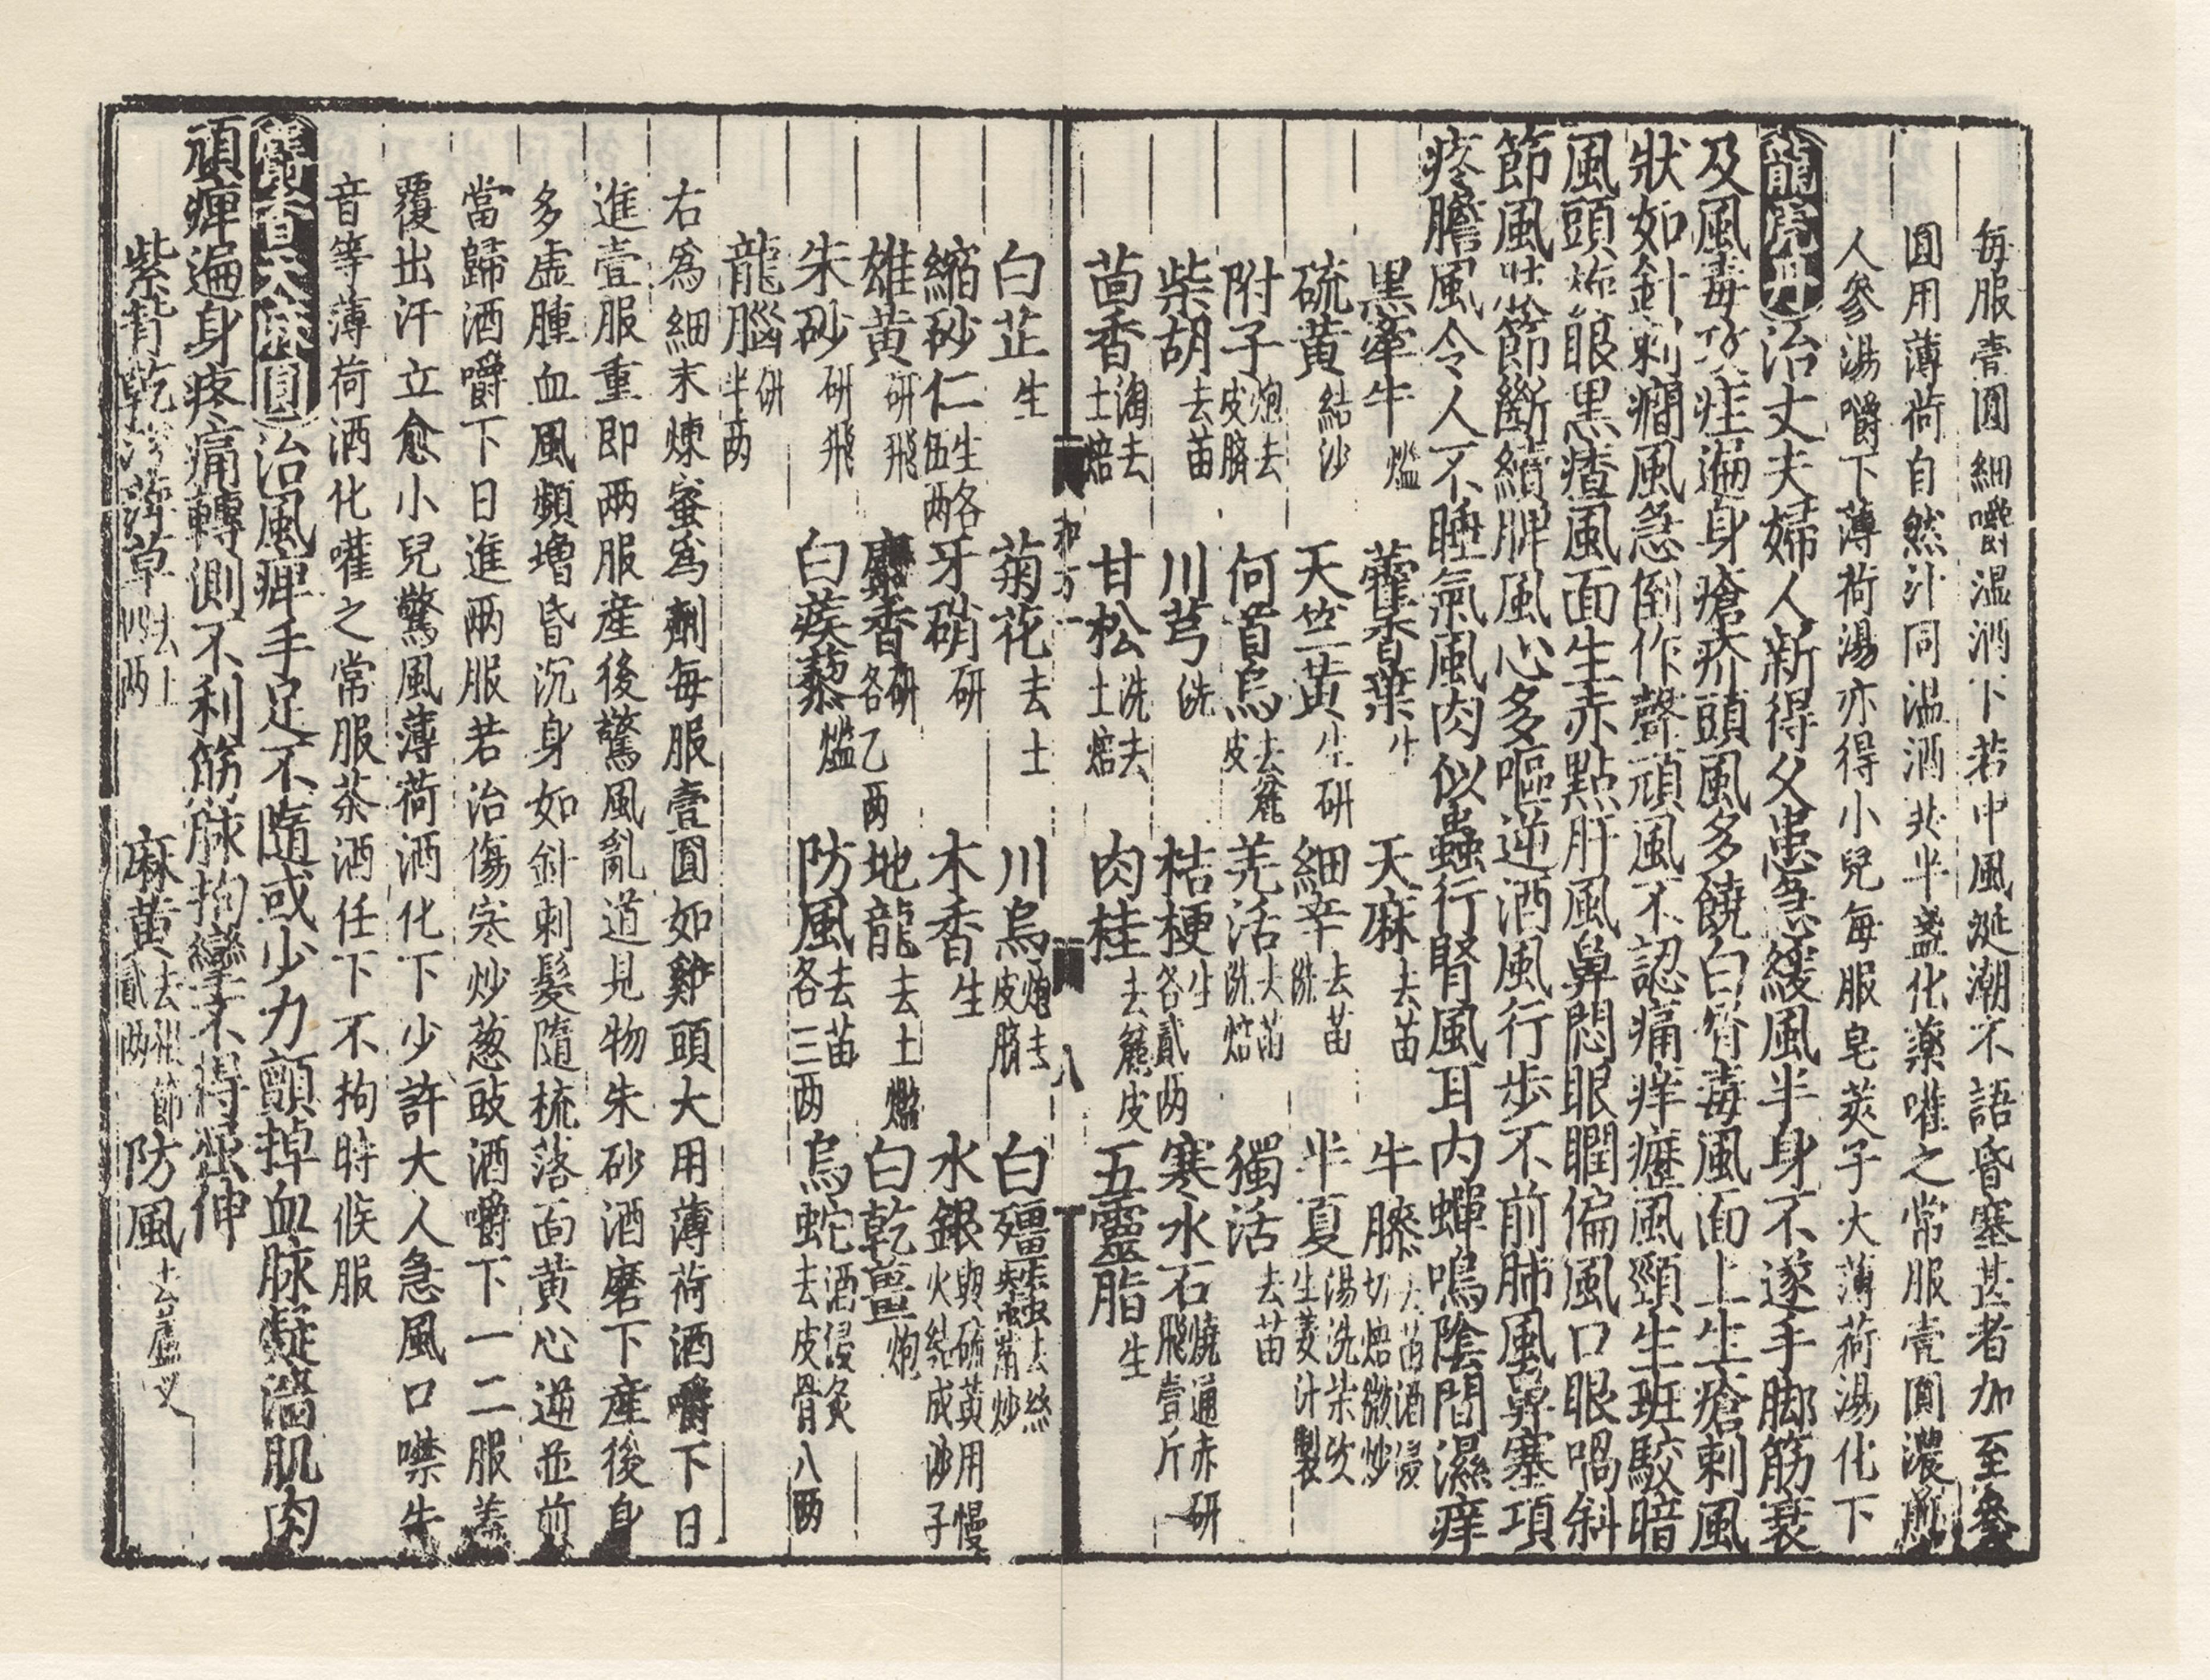 每服壹圓細嚼温酒下若中風涎潮不語昏塞甚者加至叄
圓用薄荷自然汁同温酒共半盞化藥嚾之常服壹圓濃煎
人參湯嚼下薄荷湯亦得小兒每服皂莢子大薄荷湯化下
龍虎丹治丈夫婦人新得父患急緩風半身不遂手脚筋衰
及風毒攻疰遍身瘡疥頭風多饒白屑毒風面上生瘡刺風
狀如針刺癇風急倒作聲頑風不認痛痒癧風頸生班駮暗
風頭旋眼黑㾴風面生赤點肝風鼻悶眼瞤偏風口眼喎斜
節風肢節斷續脾風心多嘔逆酒風行步不前肺風鼻塞項
疼膽風令人不睡氣風肉似蟲行腎風耳内蟬鳴陰間濕痒
黑牽牛爁 藿香葉生 天麻去苗 牛膝去苗酒浸切焙微炒
硫黄結沙 天竺黄生研 細辛去苗洗 半夏湯洗柒次生姜汁製
附子炮去皮臍 何首烏去麄皮 羌活去苗洗焙 獨活去苗
柴胡去苗 川芎洗 桔梗生各貳两 寒水石燒通赤研飛壹斤
茴香淘去土焙 甘松洗去土焙 肉桂去麄皮 五靈脂生
和方一 八
白芷生 菊花去土 川烏炮去皮臍 白殭蠶去絲觜炒
縮砂仁生各伍两 牙硝研 木香生 水銀與硫黄用慢火結成沙子
雄黄研飛 麝香研各乙两 地龍去土爁 白乾薑炮
朱砂研飛 白蒺藜爁 防風去苗各三两 烏蛇酒浸炙去皮骨八两
龍腦研半两
右為細末煉蜜為劑每服壹圓如雞頭大用薄荷酒嚼下日
進壹服重即两服産後驚風亂道見物朱砂酒磨下産後身
多虛腫血風頻增昏沉身如針刺髮隨梳落面黄心逆並煎
當歸酒嚼下日進两服若治傷寒炒葱豉酒嚼下一二服蓋
覆出汗立愈小兒驚風薄荷酒化下少許大人急風口噤失
音等薄荷酒化嚾之常服茶酒任下不拘時候服
麝香天麻圓治風痺手足不隨或少力顫掉血脉凝澁肌肉
頑痺遍身疼痛轉側不利筋脉拘攣不得屈伸
紫背乾浮萍草去土四两 麻黄去根節貳两 防風去蘆叉